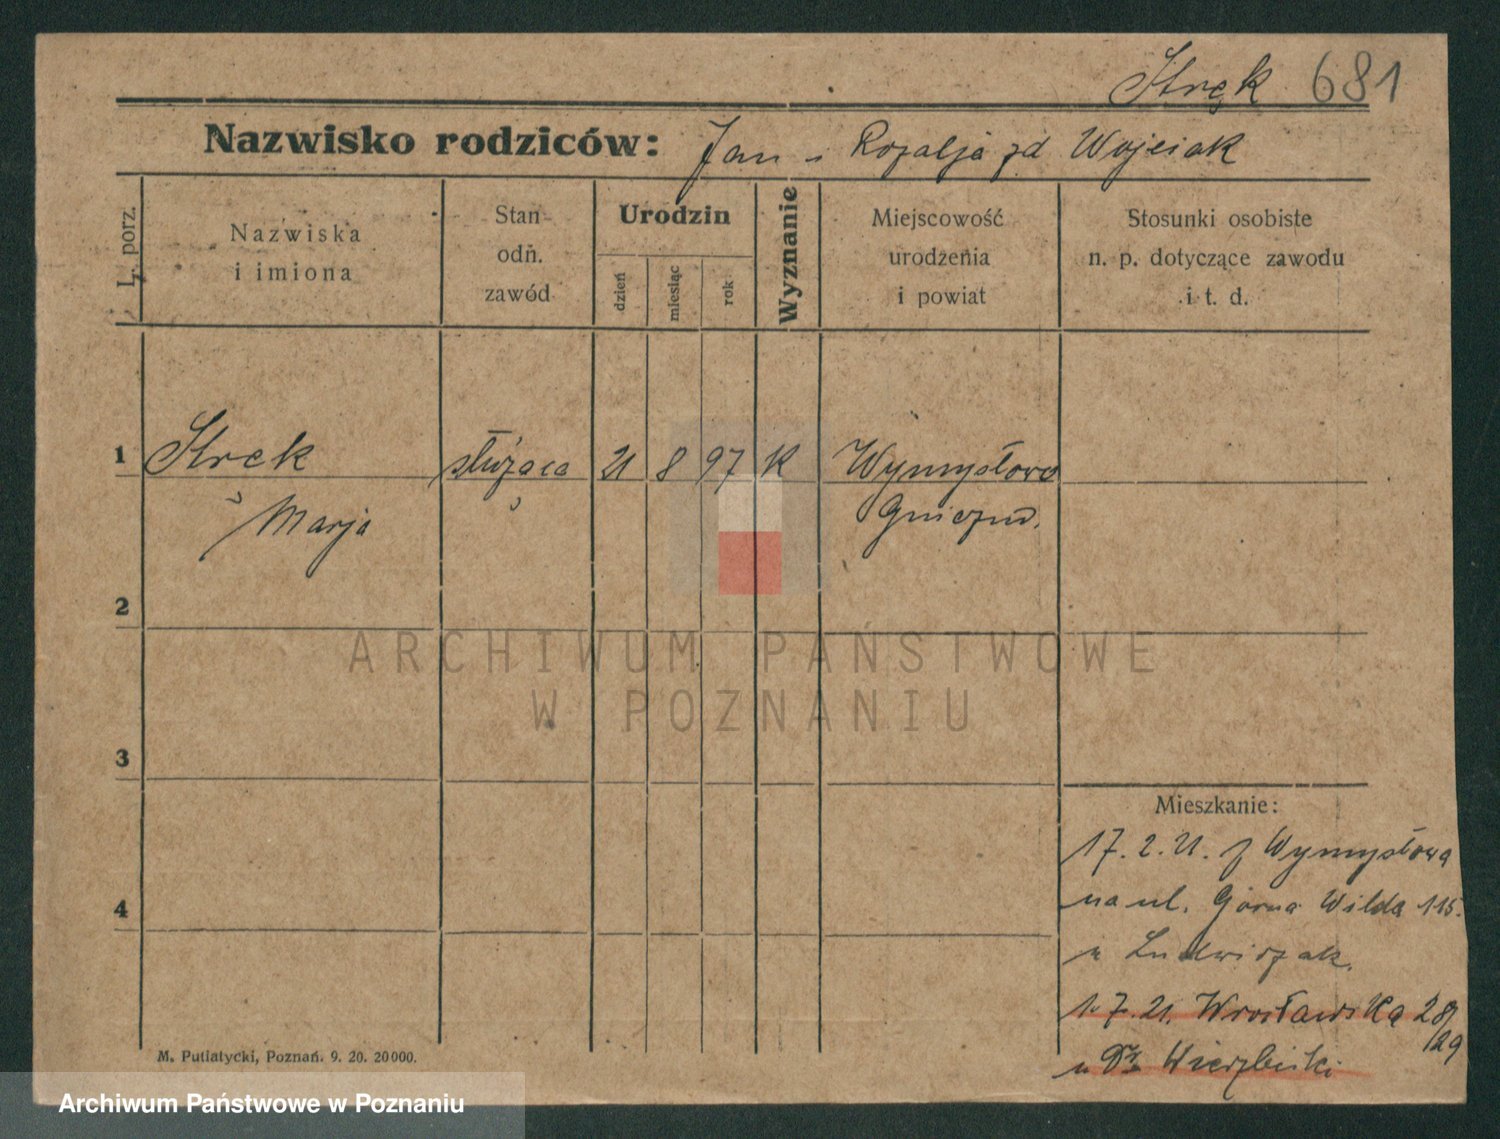 Stręk 681
Nazwisko rodziców: Jan i Rozalja zd Wojciak
L. porz.
Nazwiska
i imiona
Stan
odń.
zawód
Urodzin
dzień
miesiąc
rok
Wyznanie
Miejscowość
urodzenia
i powiat
Stosunki osobiste
n. p. dotyczące zawodu
i t. d.
1 Stręk służąca 21 8 97 K Wymysłowo
Marja Gniezno.
2
ARCHIWUM PAŃSTWOWE
W POZNANIU
3
Mieszkanie:
17. 2. 21. z Wymysłowa
4
na ul. Górna Wilda 115.
u Ludwiczak.
1. 7. 21. Wrocławska 28/29
u Wierzbicki
M. Putiatycki, Poznań. 9. 20. 20000.
Archiwum Państwowe w Poznaniu